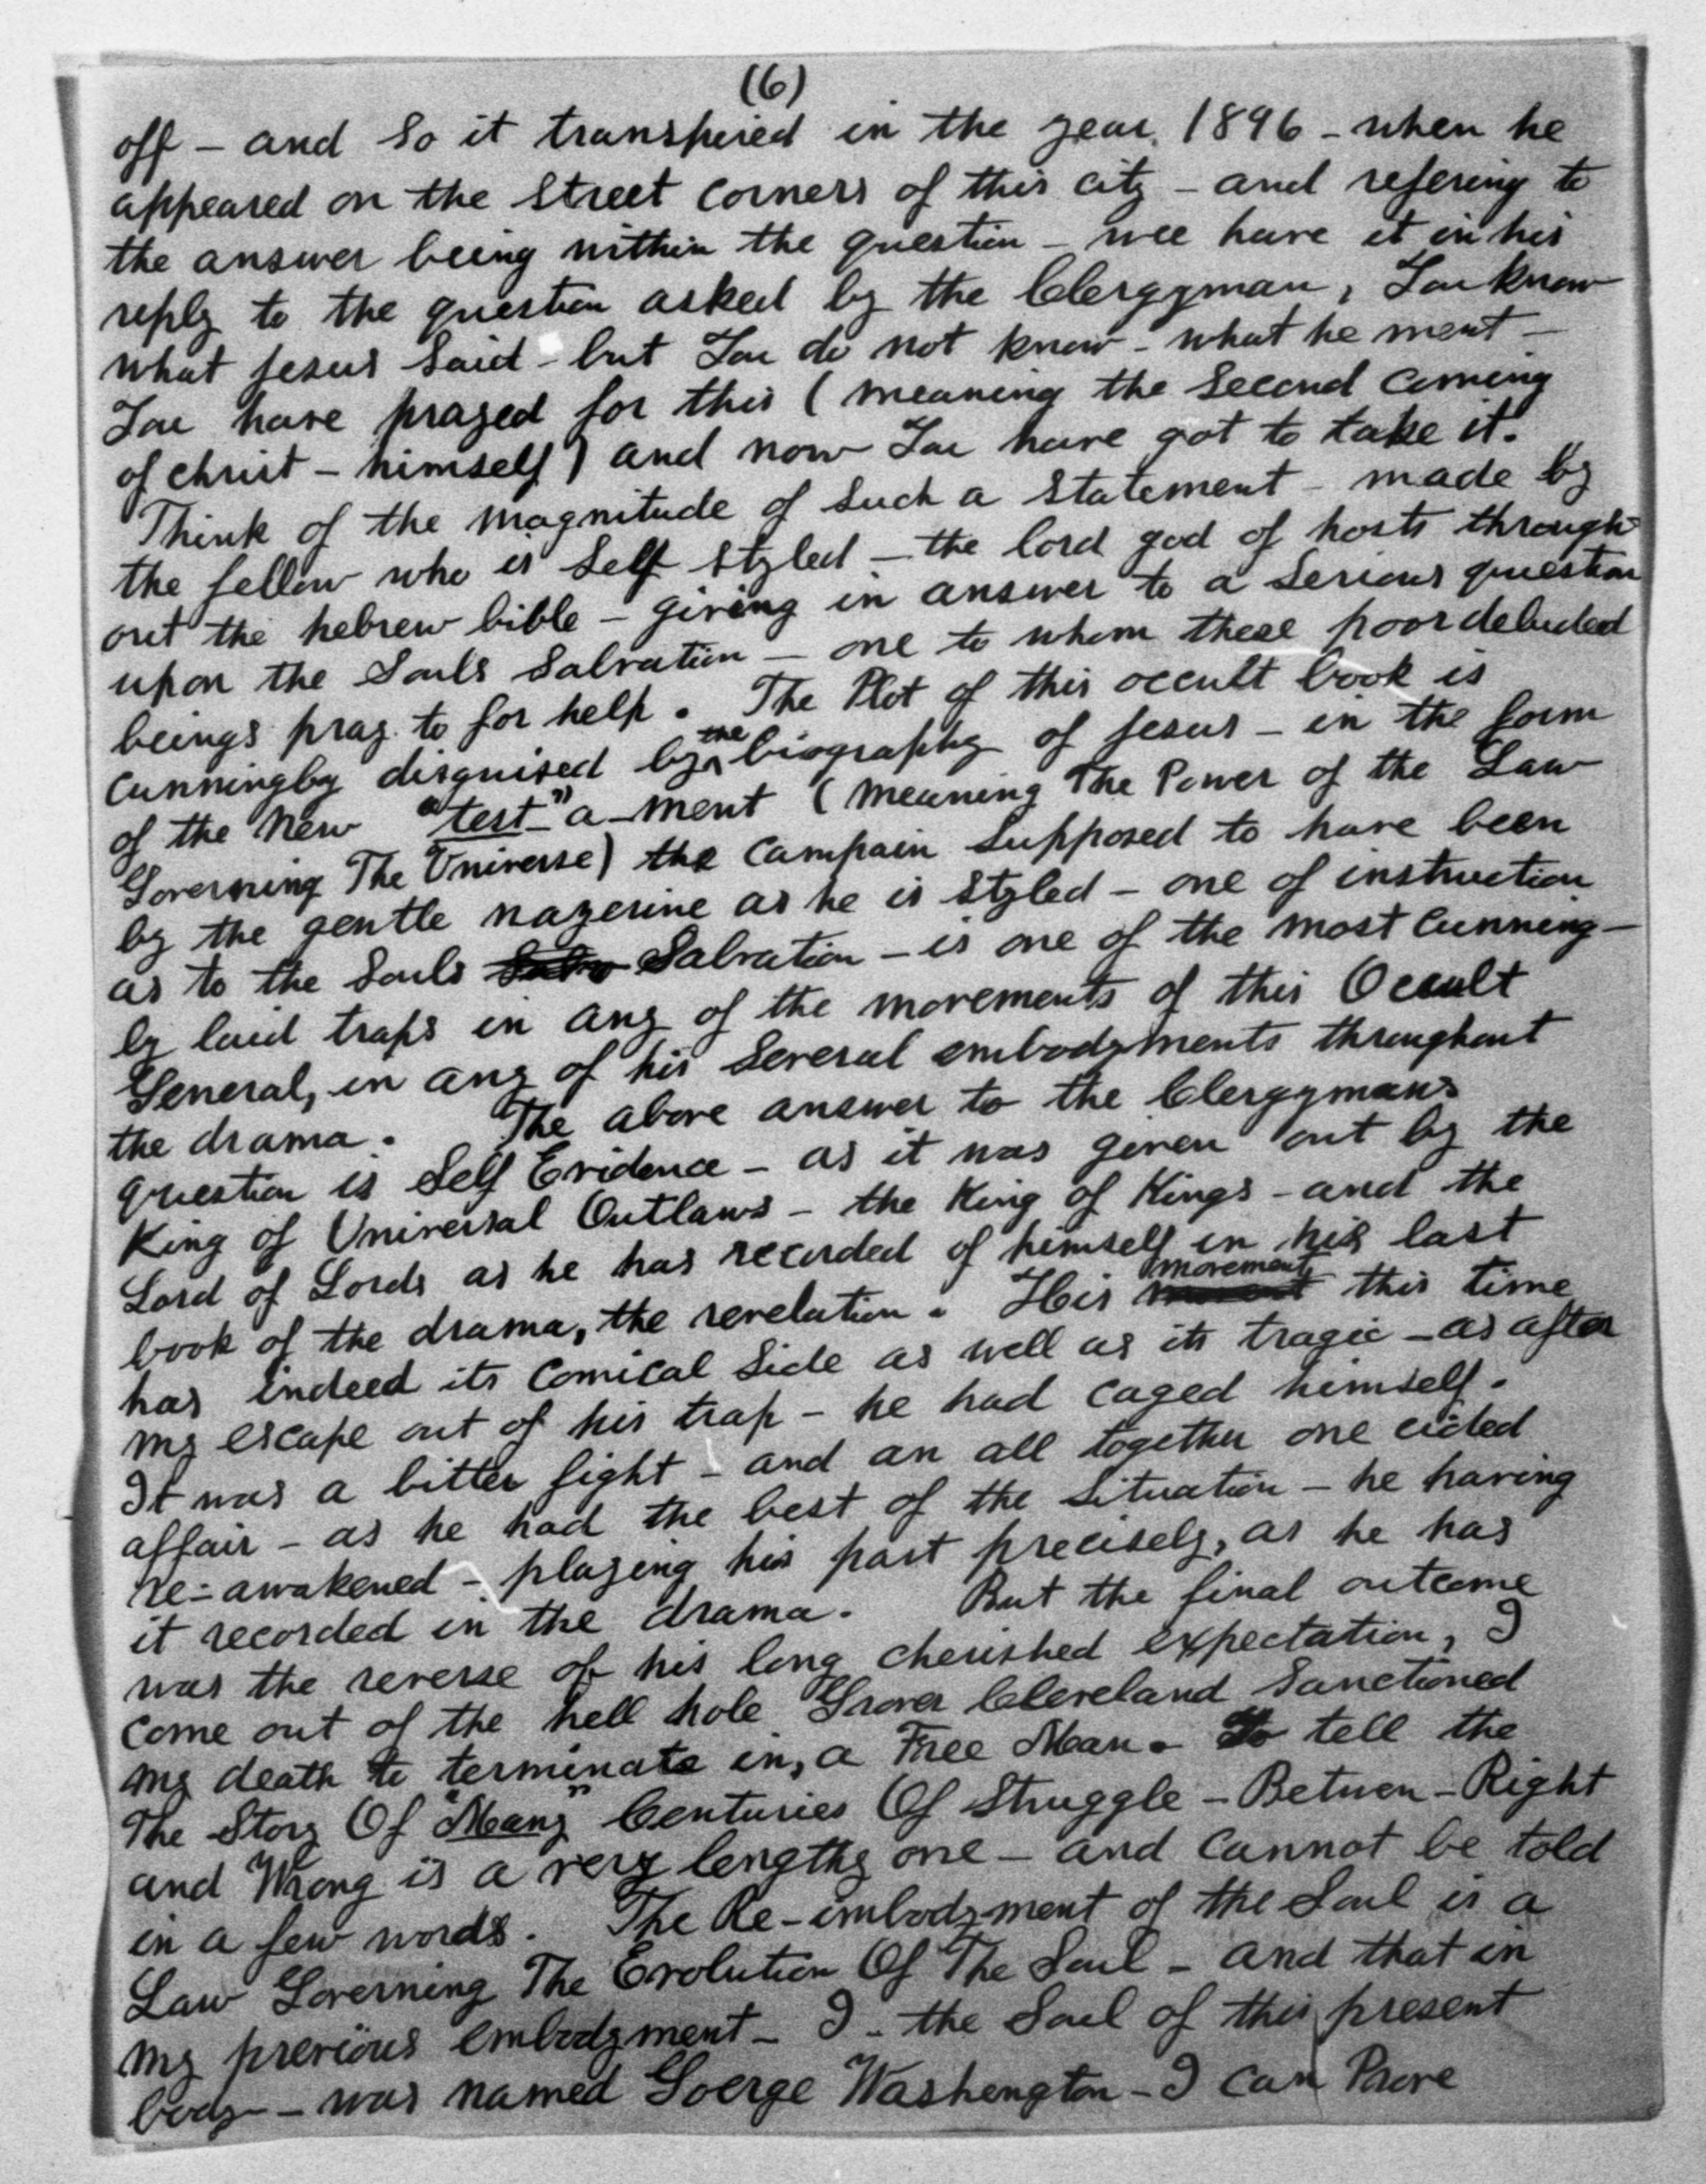 (6)
off – and so it transpired in the year, 1896 – when he
appeared on the street corners of this city – and refering to
the answer being within the question – wee have it in his
reply to the question asked by the Clergyman, You know
what jesus said – but You do not know – what he ment –
You have prayed for this (meaning the second coming
of christ – himself) and now You have got to take it.
Think of the magnitude of such a statement – made by
the fellow who is self styled – the lord god of hosts through
out the hebrew bible – giving in answer to a serious question
upon the souls salvation – one to whom these poor deluded
beings pray to for help. The Plot of this occult book is
cunningby disguised by the biography of jesus – in the form
of the New "test-"a-ment (meaning The Power of the Law
Governing The Universe) the campain supposed to have been
by the gentle nazerine as he is styled – one of instruction
as to the souls salvation – is one of the most cunning –
ly laid traps in any of the movements of this Occult
General, in any of his several embodyments throughout
the drama. The above answer to the Clergymans
question is Self Evidence – as it was given out by the
King of Universal Outlaws – the King of Kings – and the
Lord of Lords as he has recorded of himself in his last
book of the drama, the revelation. His movement this time
has indeed its comical side as well as its tragic – as after
my escape out of his trap – he had caged himself.
It was a bitter fight – and an all together one cided
affair – as he had the best of the situation – he having
re=awakened – playing his part precisely, as he has
it recorded in the drama. But the final outcome
was the reverse of his long cherished expectation, I
come out of the hell hole Grover Cleveland sanctioned
my death to terminate in, a Free Man. To tell the
The Story Of "Many" Centuries Of Struggle – Betwen – Right
and Wrong is a very lengthy one – and cannot be told
in a few words. The Re-imbodyment of the Soul is a
Law Governing The Evolution Of The Soul – and that in
my previous embodyment – I – the Soul of this present
body – was named Goerge Washengton – I can Prove